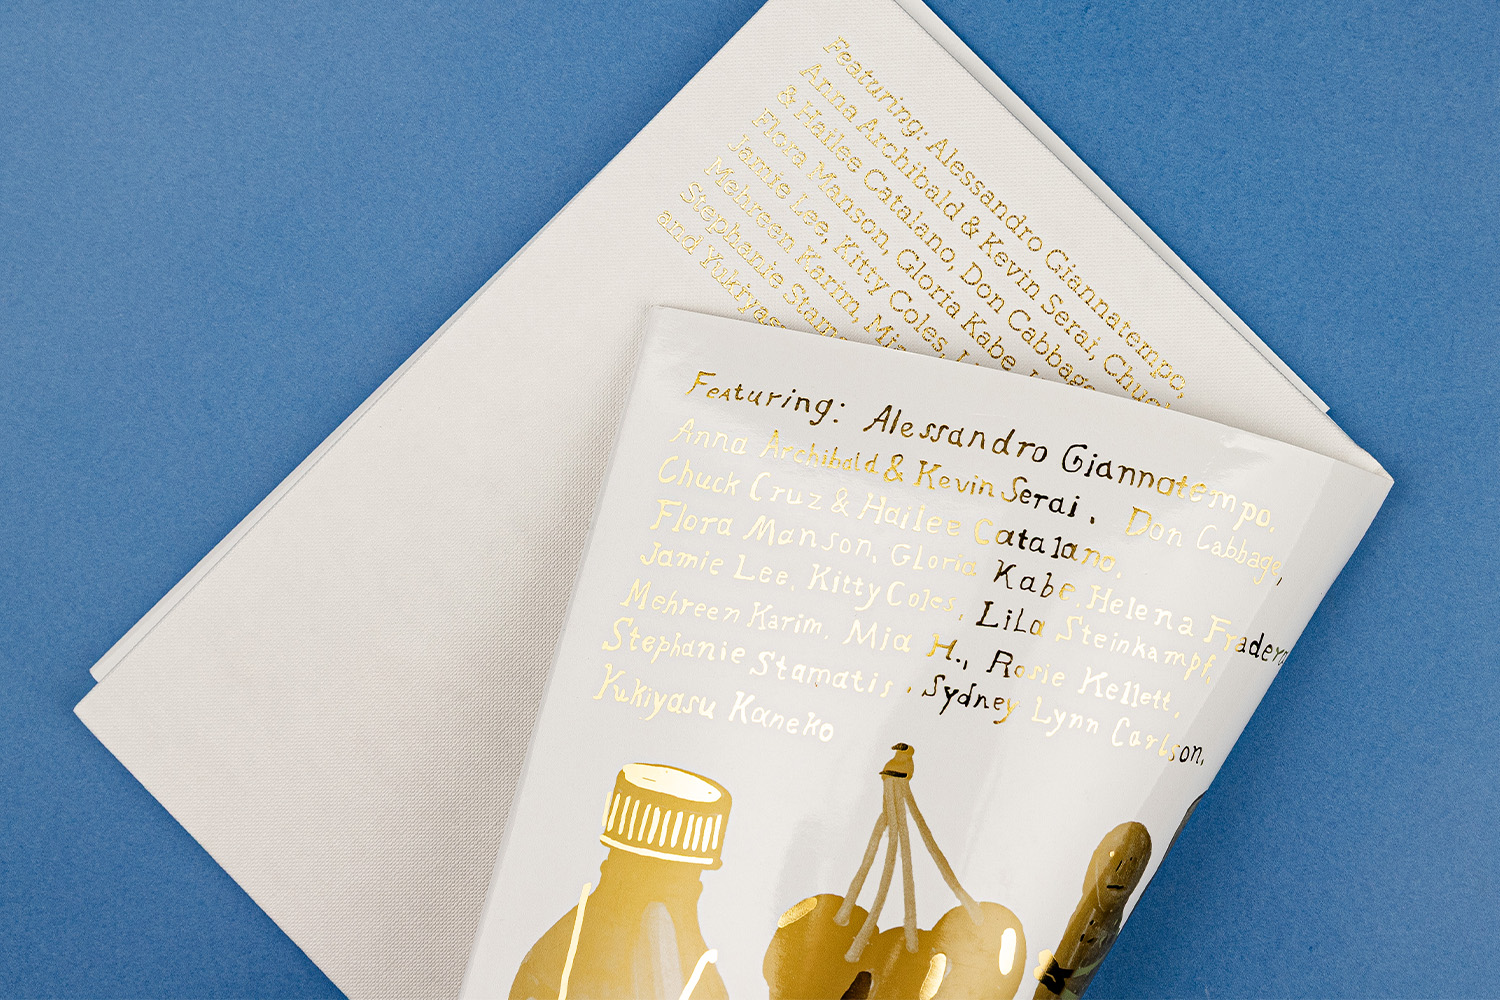 Featuring: Alessandro Giannatempo,
Anna Archibald & Kevin Serai, Chuck
& Hailee Catalano, Don Cabbage
Flora Manson, Gloria Kabe,
Jamie Lee, Kitty Coles,
Mehreen Karim, Mia
Stephanie
and
Featuring: Alessandro Giannatempo,
Anna Archibald & Kevin Serai, Don Cabbage,
Chuck Cruz & Hailee Catalano,
Flora Manson, Gloria Kabe, Helena Fradera
Jamie Lee, Kitty Coles, Lila Steinkampf,
Mehreen Karim, Mia H., Rosie Kellett,
Stephanie Stamatis, Sydney Lynn Carlson,
Yukiyasu Kaneko